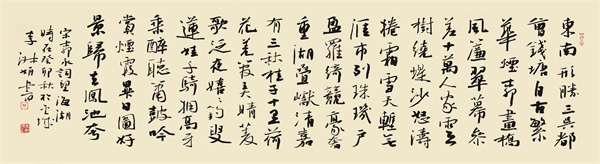 東南形勝三吳都
會錢塘自古繁
華煙柳畫橋
風簾翠幕參
差十萬人家雲
樹繞堤沙怒濤
捲霜雪天塹無
涯市列珠璣戶
盈羅綺競豪奢
重湖疊巘清嘉
有三秋桂子十里荷
花羌管弄晴菱
歌泛夜嬉嬉釣叟
蓮娃千騎擁高牙
乘醉聽簫鼓吟
賞煙霞異日圖好
景歸去鳳池誇
宋柳永詞望海潮
時在癸卯秋於京城
李書